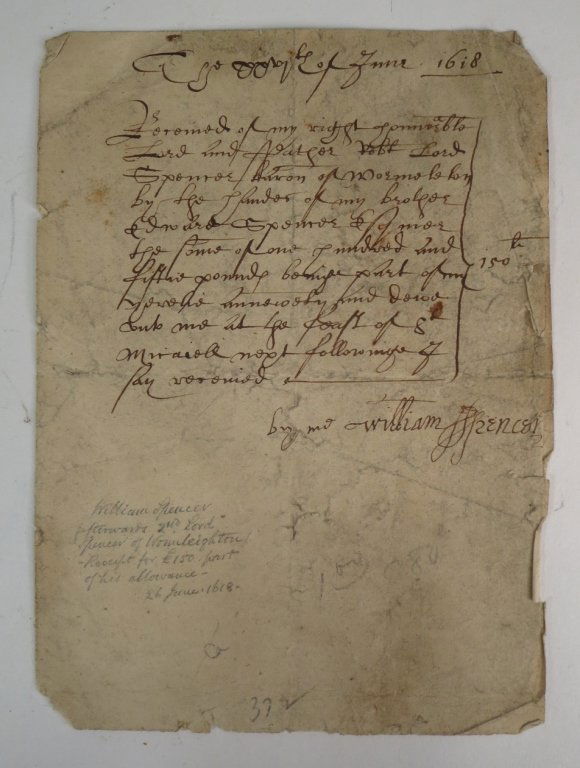 The xxvjth of June 1618
Received of my right honnorable
Lord and ffeather Robt Lord
Spencer Barron of Wormeleton
by the handes of my brother
Edward Spencer Esquier
the some of one hundred and
fiftie pounds beinge part of my
yerelie annewety and dewe
unto me at the feast of St
Micaiell next followinge I
say received
150 li
by me William Spencer
William Spencer
afterwards 2nd Lord
Spencer of Wormleighton
Receipt for £150. part
of his allowance -
26 June. 1618.
37